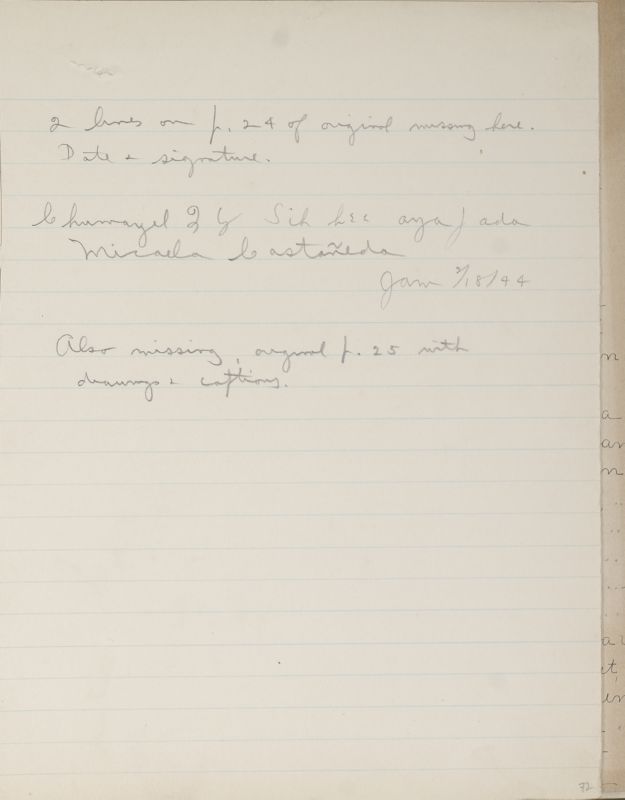 2 lines on p. 24 of original missing here.
Date & signature.
Chumayel 2 y Sih aya ada
Micaela Castañeda
/18/44
Also missing, original p. 25 with
drawings & captions.
n
a
an
n
a
et
en
72